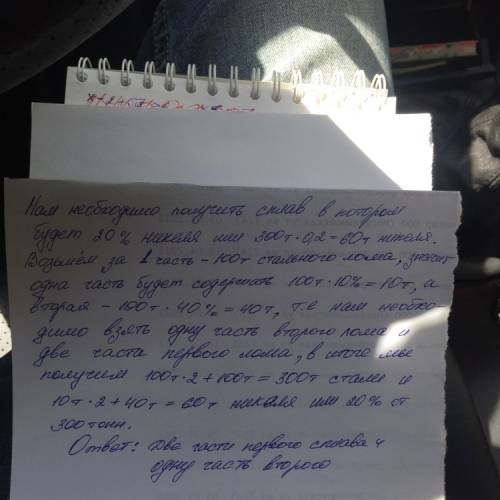 Нам необходимо получить сплав в котором
будет 20% никеля или 300т·0,2=60т никеля.
Возьмём за 1 часть - 100т стального лома, значит
одна часть будет содержать 100т·10%=10т, а
вторая - 100т·40%=40т, т.е нам необхо-
димо взять одну часть второго лома и
две части первого лома, в итоге мы
получим 100т·2+100т=300т стали и
10т·2+40т=60т никеля или 20% от
300тонн.
Ответ: две части первого сплава и
одну часть второго